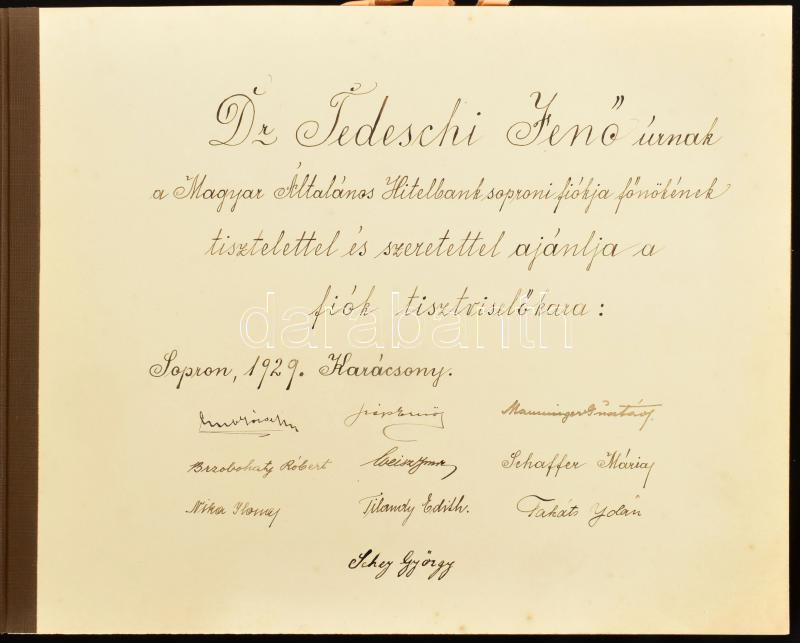 Dr. Tedeschi Jenő úrnak
a Magyar Általános Hitelbank soproni fiókja főnökének
tisztelettel és szeretettel ajánlja a
fiók tisztviselőkara:
darabanth
Sopron, 1929. Karácsony.
Manninger Gusztáv
Brzobohaty Róbert Weisz Imre Schaffer Mária
Nika Ilona Tilandy Edith. Takáts Ydán
Schey György